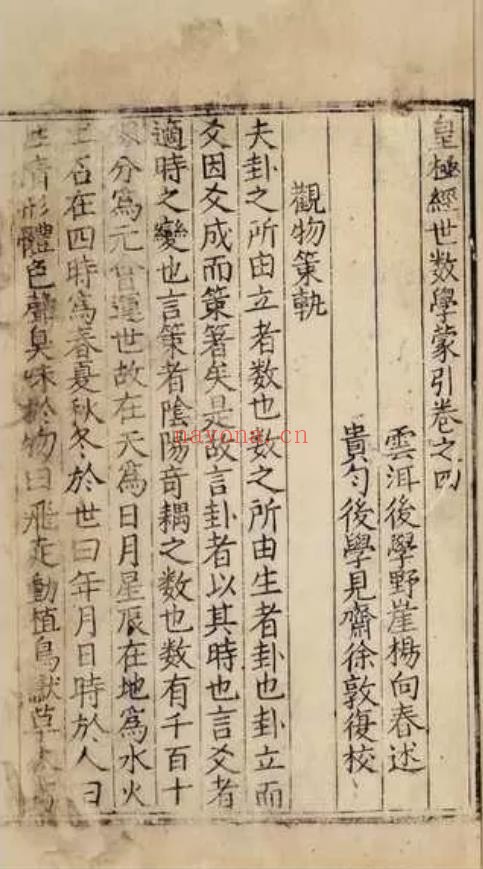 皇極經世数學蒙引卷之四
雲洱後學野崖楊向春述
貴勻後學見齋徐敦復校
觀物策軌
夫卦之所由立者数也数之所由生者卦也卦立而
爻因爻成而策著矣是故言卦者以其時也言爻者
適時之變也言策者陰陽奇耦之数也数有千百十
分為元會運世故在天為日月星辰在地為水火
石在四時為春夏秋冬於世曰年月日時於人曰
性情形體色聲臭味於物曰飛走動植鳥獸草木
nayona.cn